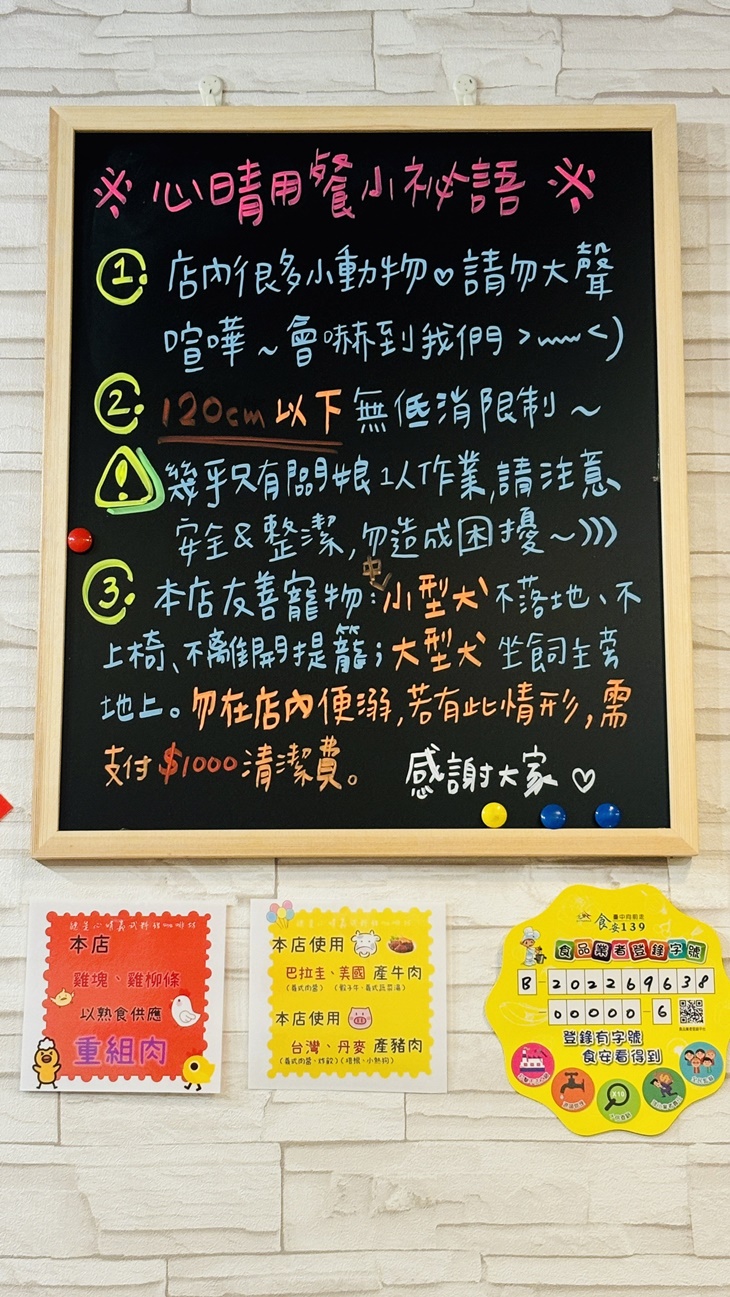 ※ 心晴用餐小祕語 ※
1. 店內很多小動物♡請勿大聲
喧嘩~會嚇到我們 >﹏<)
2. 120cm以下無低消限制~
! 幾乎只有闆娘1人作業,請注意
安全&整潔,勿造成困擾~)))
3. 本店友善寵物:小型犬 不落地、不
中
上椅、不離開提籠;大型犬 坐飼主旁
地上。勿在店內便溺,若有此情形,需
支付$1000清潔費。 感謝大家♡
本店
雞塊、雞柳條
以熟食供應
重組肉
本店使用
巴拉圭、美國 產牛肉
(義式肉醬) (骰子牛、義式蔬菜湯)
本店使用
台灣、丹麥 產豬肉
(義式肉醬、炸餃) (培根、小熱狗)
臺中向前走
食安139
食品業者登錄字號
B-202269638
00000-6
登錄有字號
食安看得到